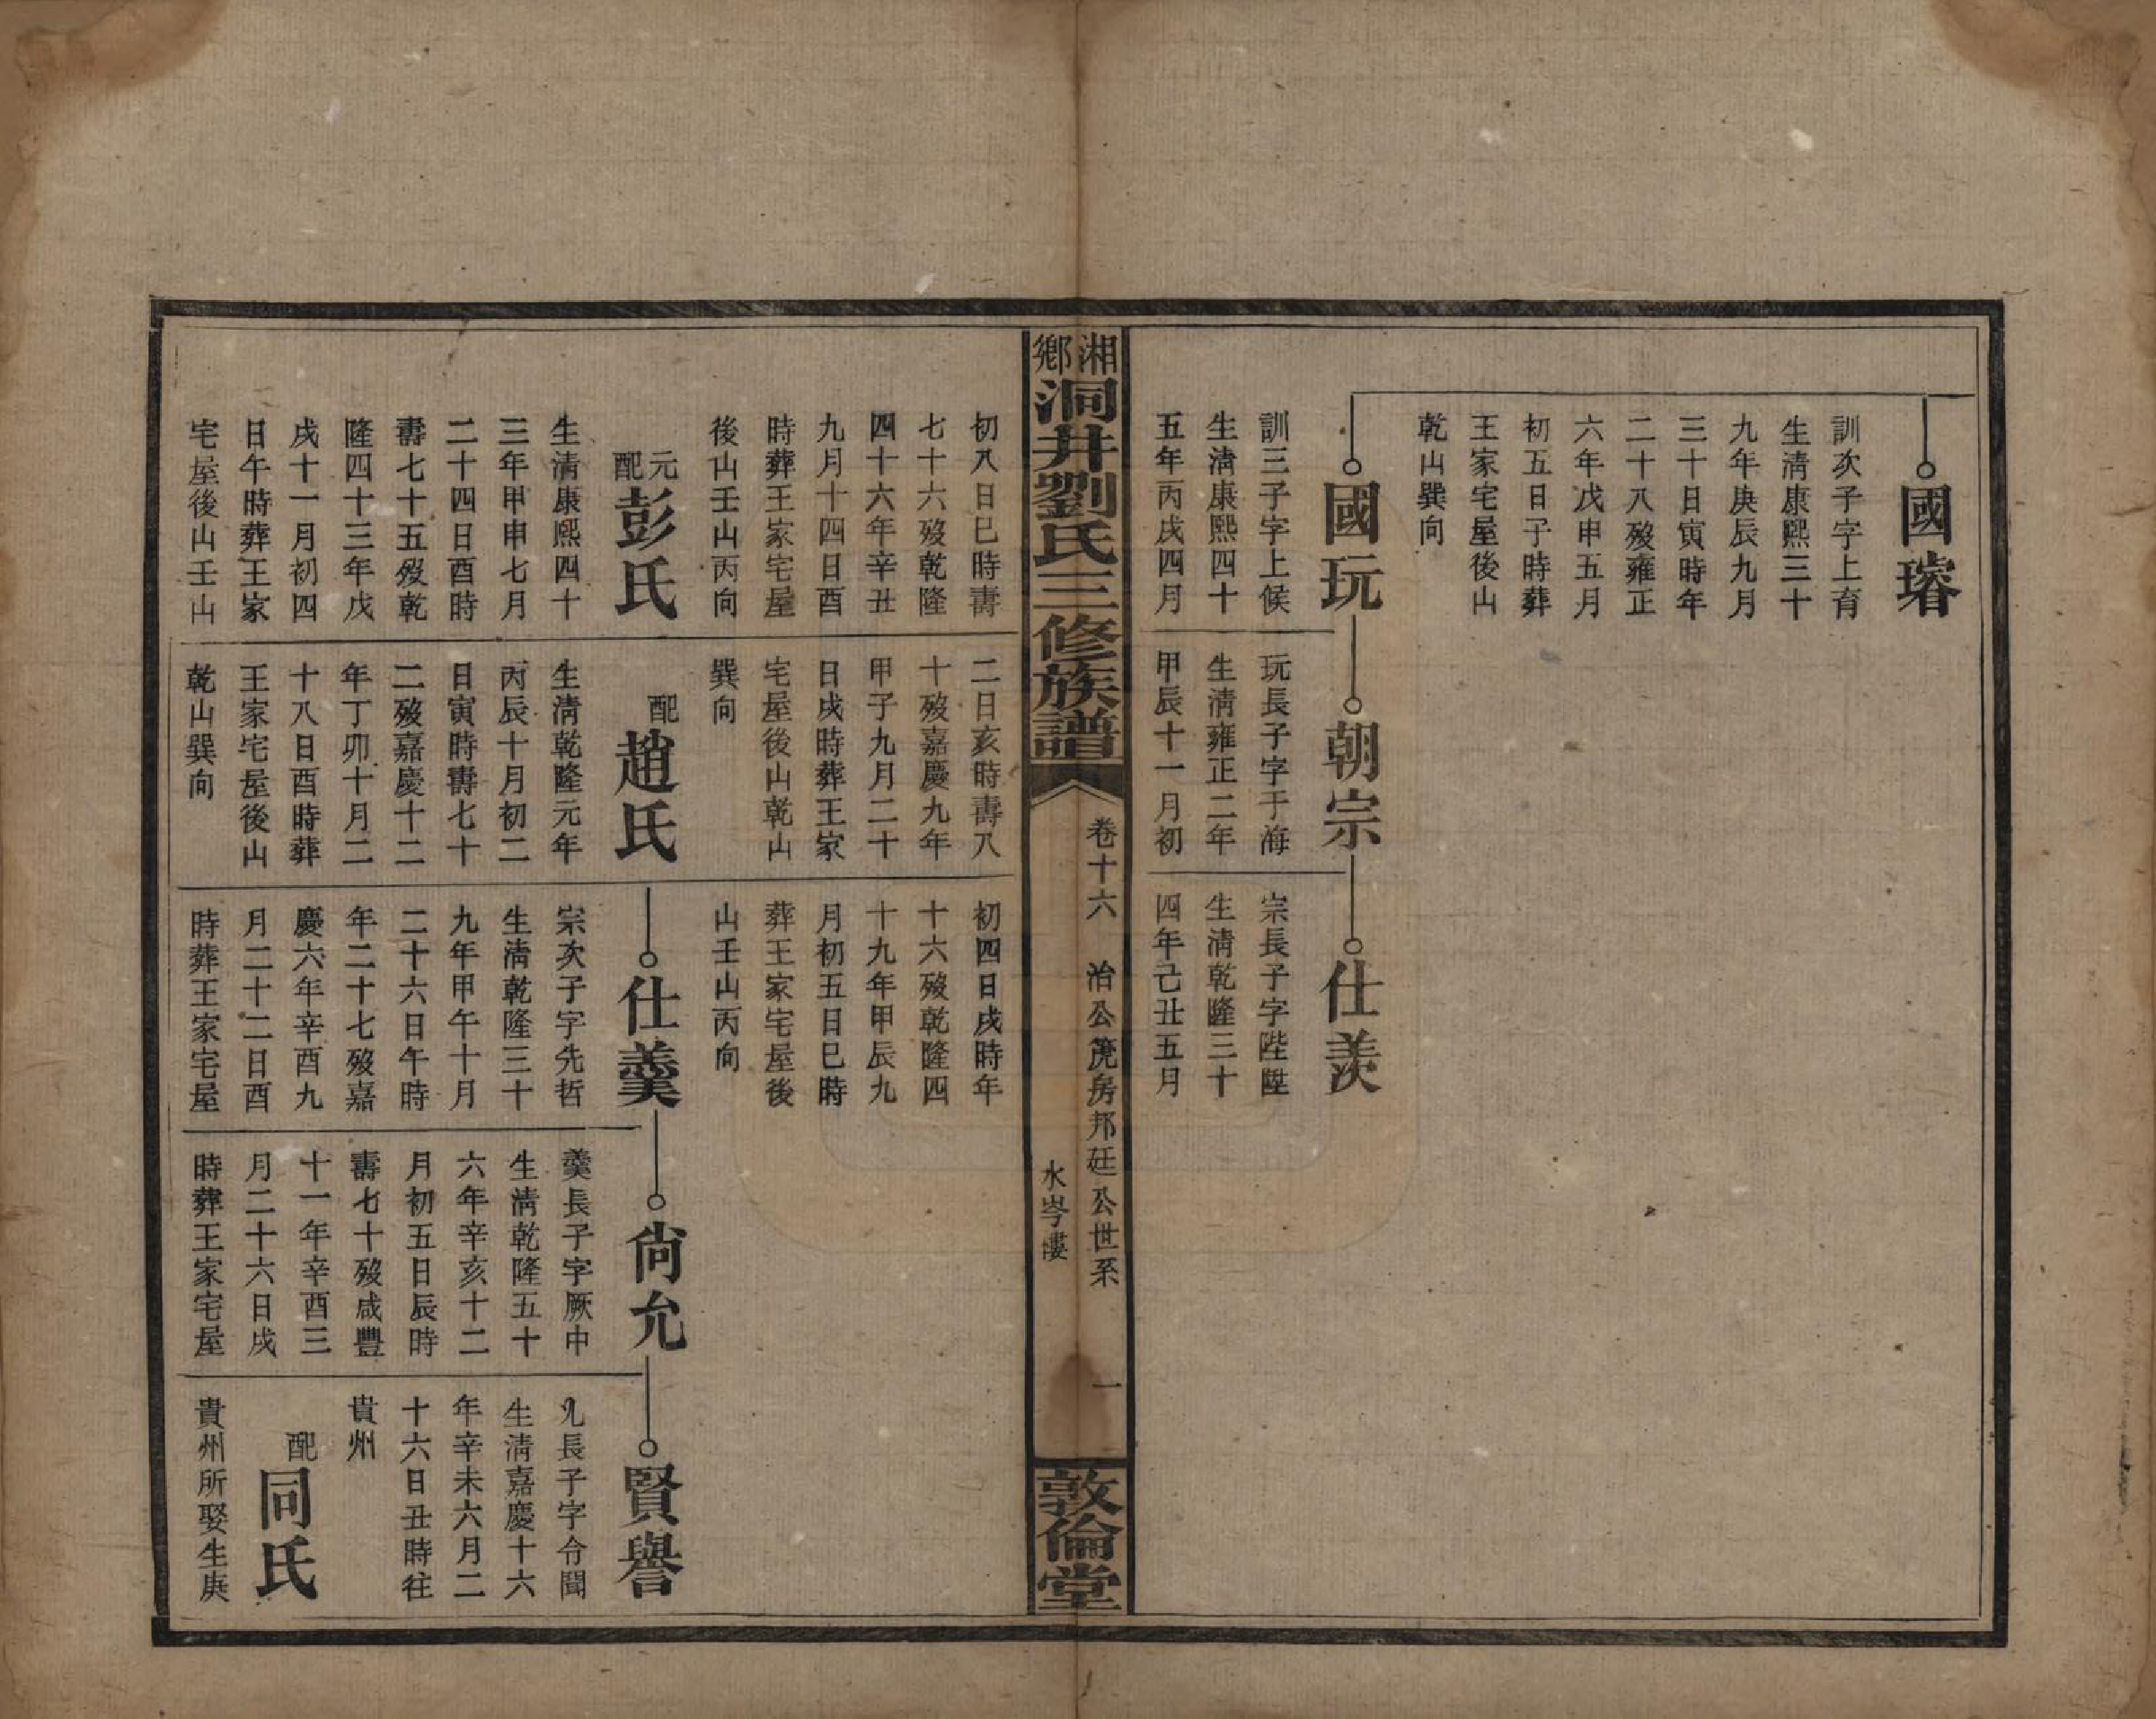 國璿
訓次子字上育
生清康熙三十
九年庚辰九月
三十日寅時年
二十八歿雍正
六年戊申五月
初五日子時葬
王家宅屋後山
乾山巽向
國玩
訓三子字上候
生清康熙四十
五年丙戌四月
朝宗
玩長子字于海
生清雍正二年
甲辰十一月初
仕羨
宗長子字陛陞
生清乾隆三十
四年己丑五月
湘鄉洞井劉氏三修族譜
卷十六 治公箎房邦廷公世系 一
水岑塿
敦倫堂
初八日巳時壽
七十六歿乾隆
四十六年辛丑
九月十四日酉
時葬王家宅屋
後山壬山丙向
元配彭氏
生清康熙四十
三年甲申七月
二十四日酉時
壽七十五歿乾
隆四十三年戊
戌十一月初四
日午時葬王家
宅屋後山壬山
二日亥時壽八
十歿嘉慶九年
甲子九月二十
日戌時葬王家
宅屋後山乾山
巽向
配趙氏
生清乾隆元年
丙辰十月初二
日寅時壽七十
二歿嘉慶十二
年丁卯十月二
十八日酉時葬
王家宅屋後山
乾山巽向
初四日戌時年
十六歿乾隆四
十九年甲辰九
月初五日巳時
葬王家宅屋後
山壬山丙向
仕羹
宗次子字先哲
生清乾隆三十
九年甲午十月
二十六日午時
年二十七歿嘉
慶六年辛酉九
月二十二日酉
時葬王家宅屋
尙允
羹長子字厥中
生清乾隆五十
六年辛亥十二
月初五日辰時
壽七十歿咸豐
十一年辛酉三
月二十六日戌
時葬王家宅屋
賢譽
允長子字令聞
生清嘉慶十六
年辛未六月二
十六日丑時往
貴州
配同氏
貴州所娶生庚